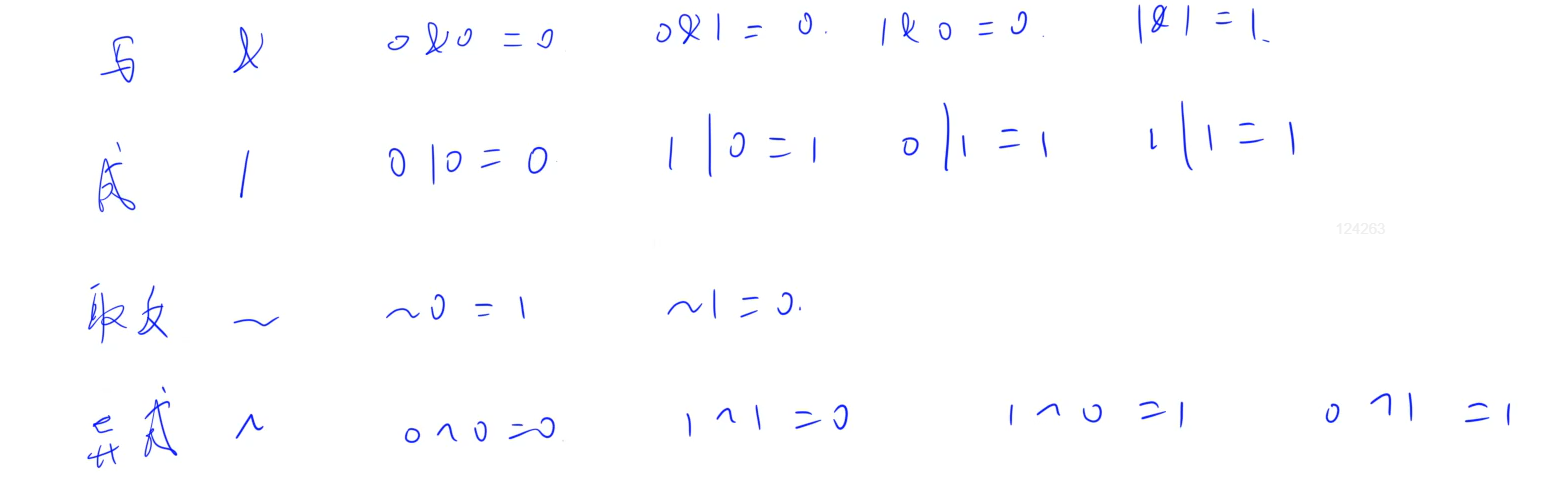 与 & 0&0=0 0&1=0. 1&0=0. 1&1=1.
或 | 0|0=0 1|0=1 0|1=1 1|1=1
124263
取反 ~ ~0=1 ~1=0.
异或 ^ 0^0=0 1^1=0 1^0=1 0^1=1